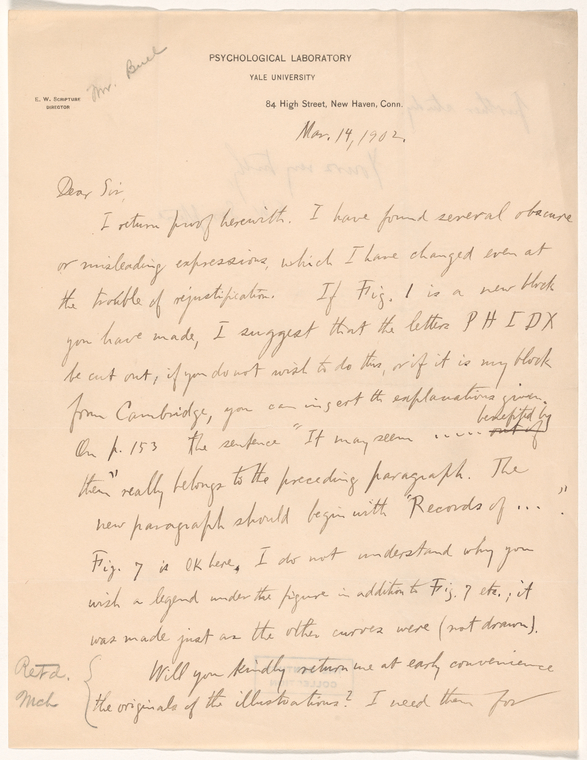 PSYCHOLOGICAL LABORATORY
YALE UNIVERSITY
Mr. Buel
E. W. SCRIPTURE
DIRECTOR
84 High Street, New Haven, Conn.
Mar. 14, 1902.
Dear Sir,
I return proof herewith. I have found several obscure
or misleading expressions, which I have changed even at
the trouble of rejustification. If Fig. 1 is a new block
you have made, I suggest that the letters P H I D X
be cut out; if you do not wish to do this, or if it is my block
from Cambridge, you can insert the explanations given.
On p. 153 the sentence "It may seem ..... out of benefited by
them" really belongs to the preceding paragraph. The
new paragraph should begin with "Records of ...".
Fig. 7 is OK here. I do not understand why you
wish a legend under the figure in addition to Fig. 7 etc.; it
was made just as the other curves were (not drawn).
Will you kindly return me at early convenience
the originals of the illustrations? I need them for
Retd.
Mch